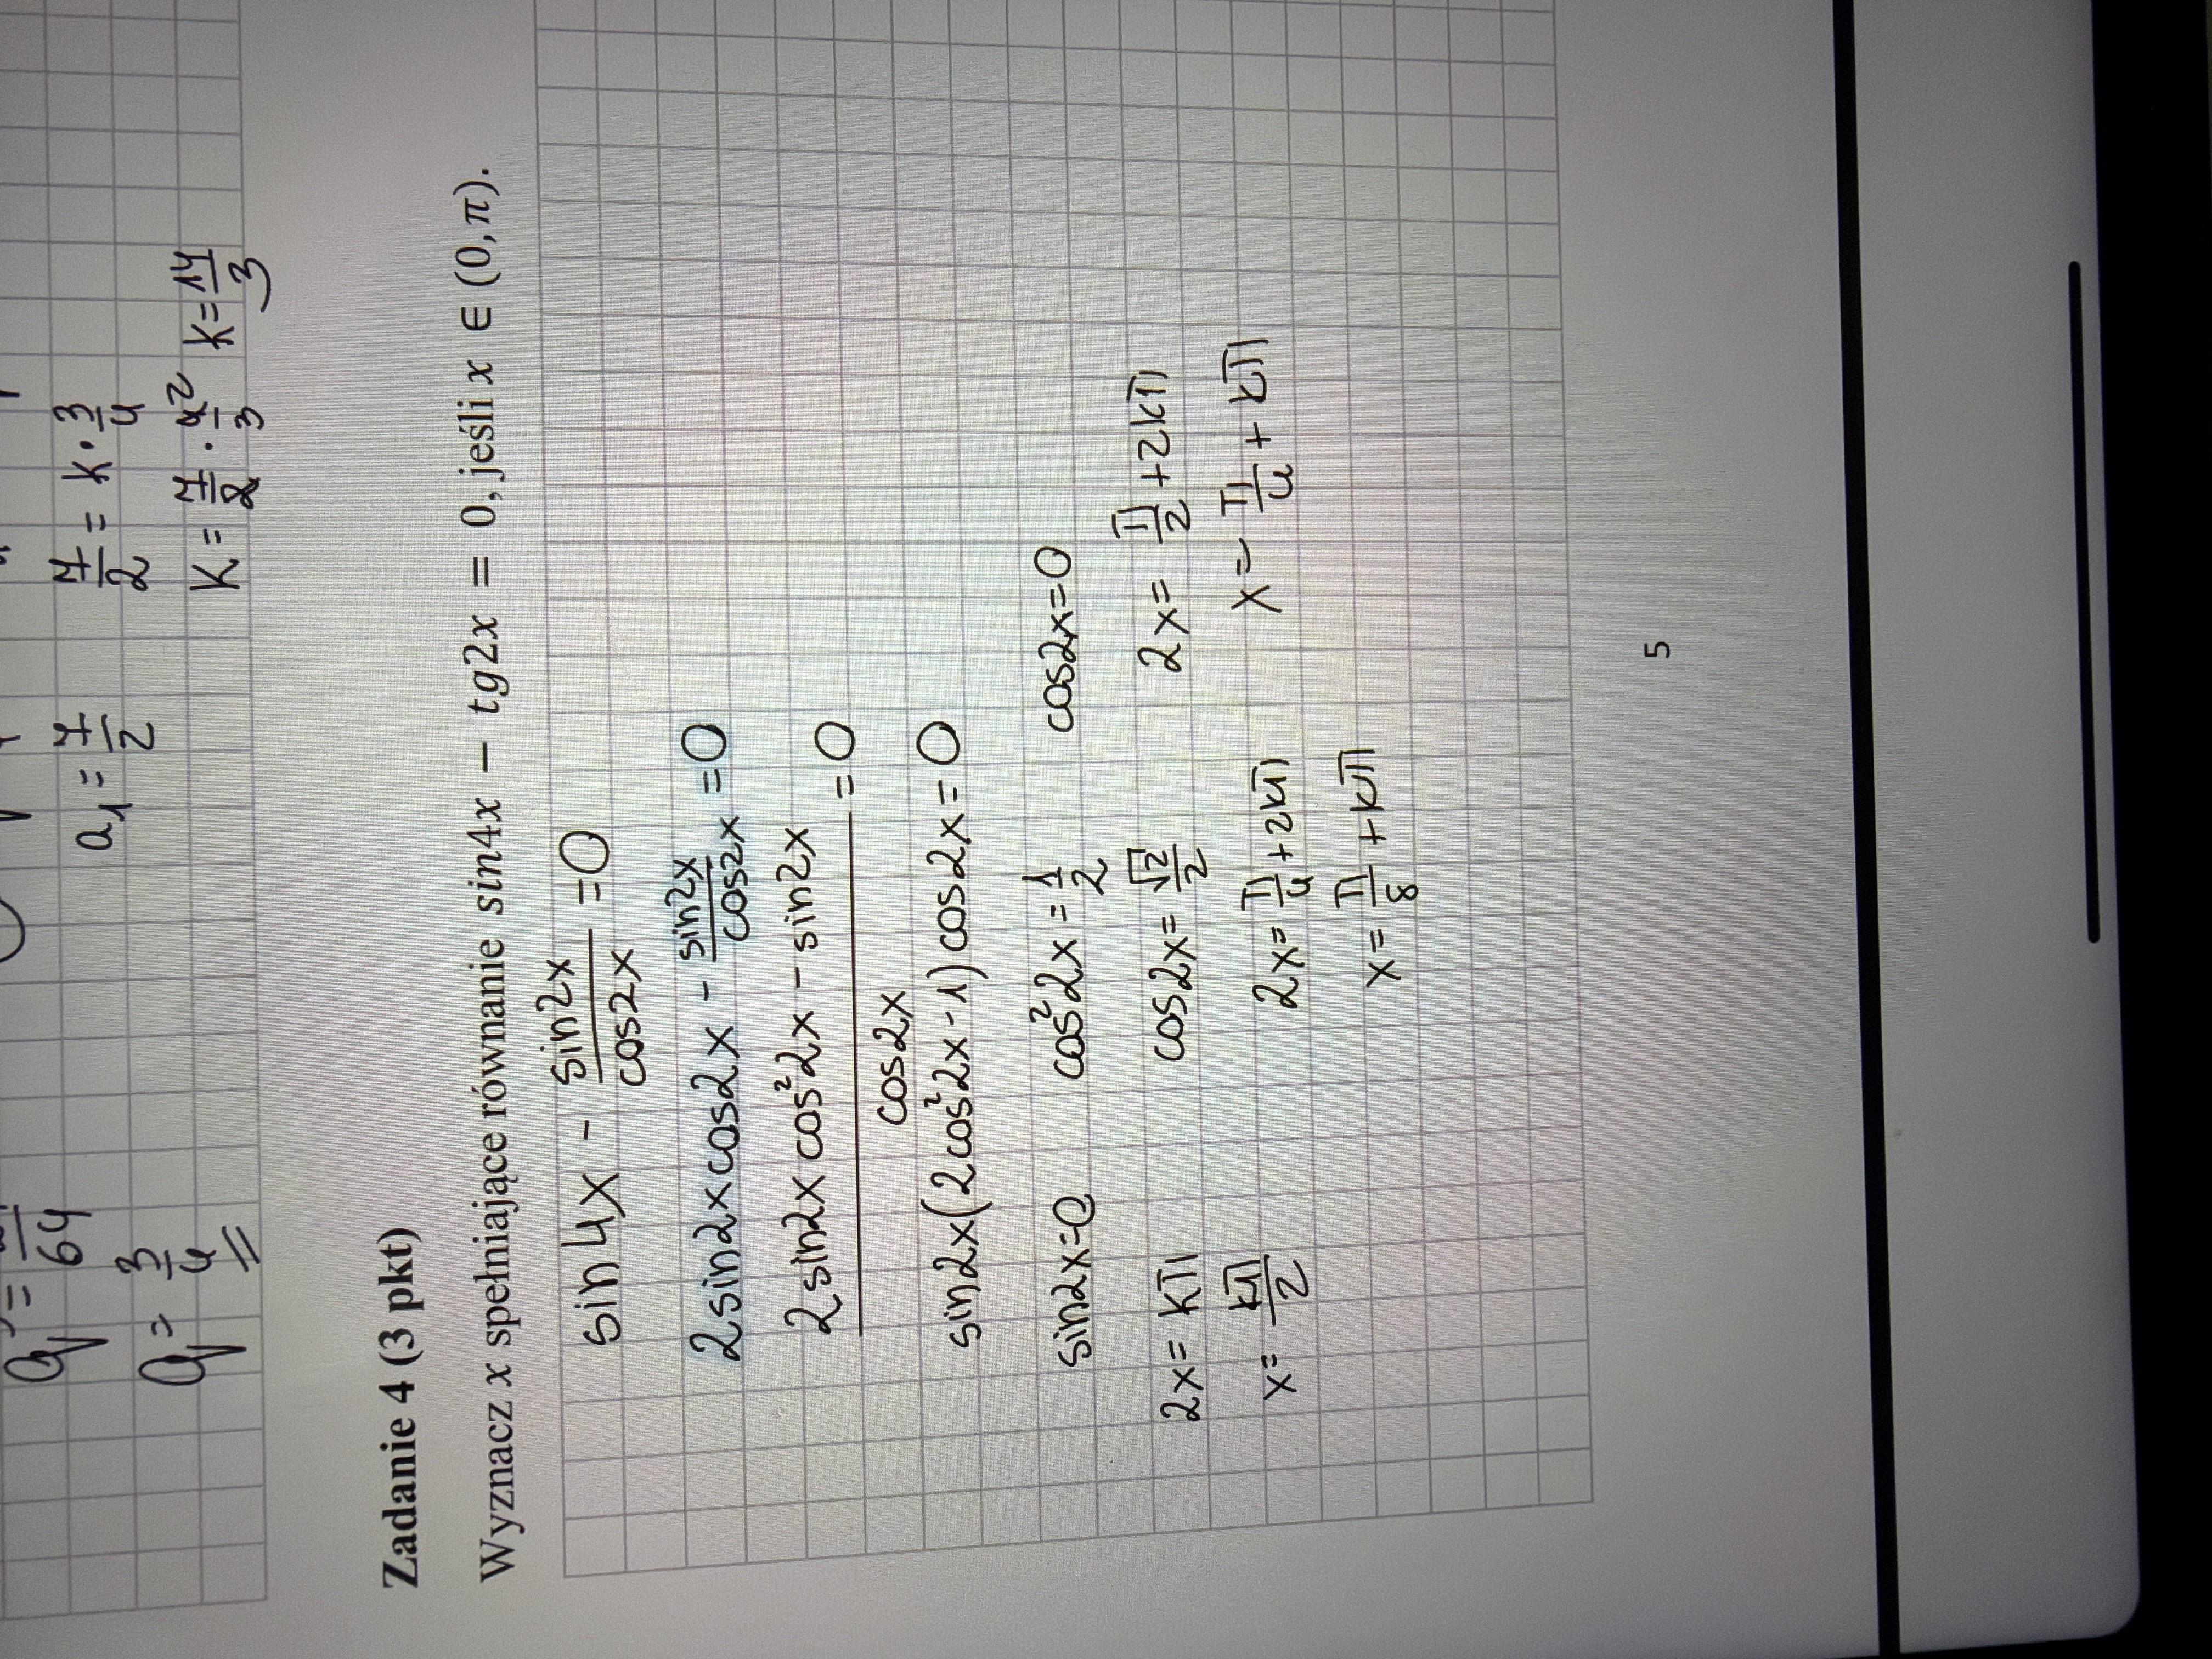 q = 64
a₁ = 7/2
7/2 = k · 3/4
q = 3/4
k = 7/2 · 4²/3 k = 14/3
Zadanie 4 (3 pkt)
Wyznacz x spełniające równanie sin4x − tg2x = 0, jeśli x ∈ (0, π).
sin4x - sin2x/cos2x = 0
2sin2xcos2x - sin2x/cos2x = 0
2sin2xcos²2x - sin2x/cos2x = 0
sin2x(2cos²2x-1)cos2x=0
sin2x=0 cos²2x = 1/2 cos2x=0
2x = kπ cos2x = √2/2 2x = π/2 + 2kπ
x = kπ/2 2x = π/4 + 2kπ x = π/4 + kπ
x = π/8 + kπ
5